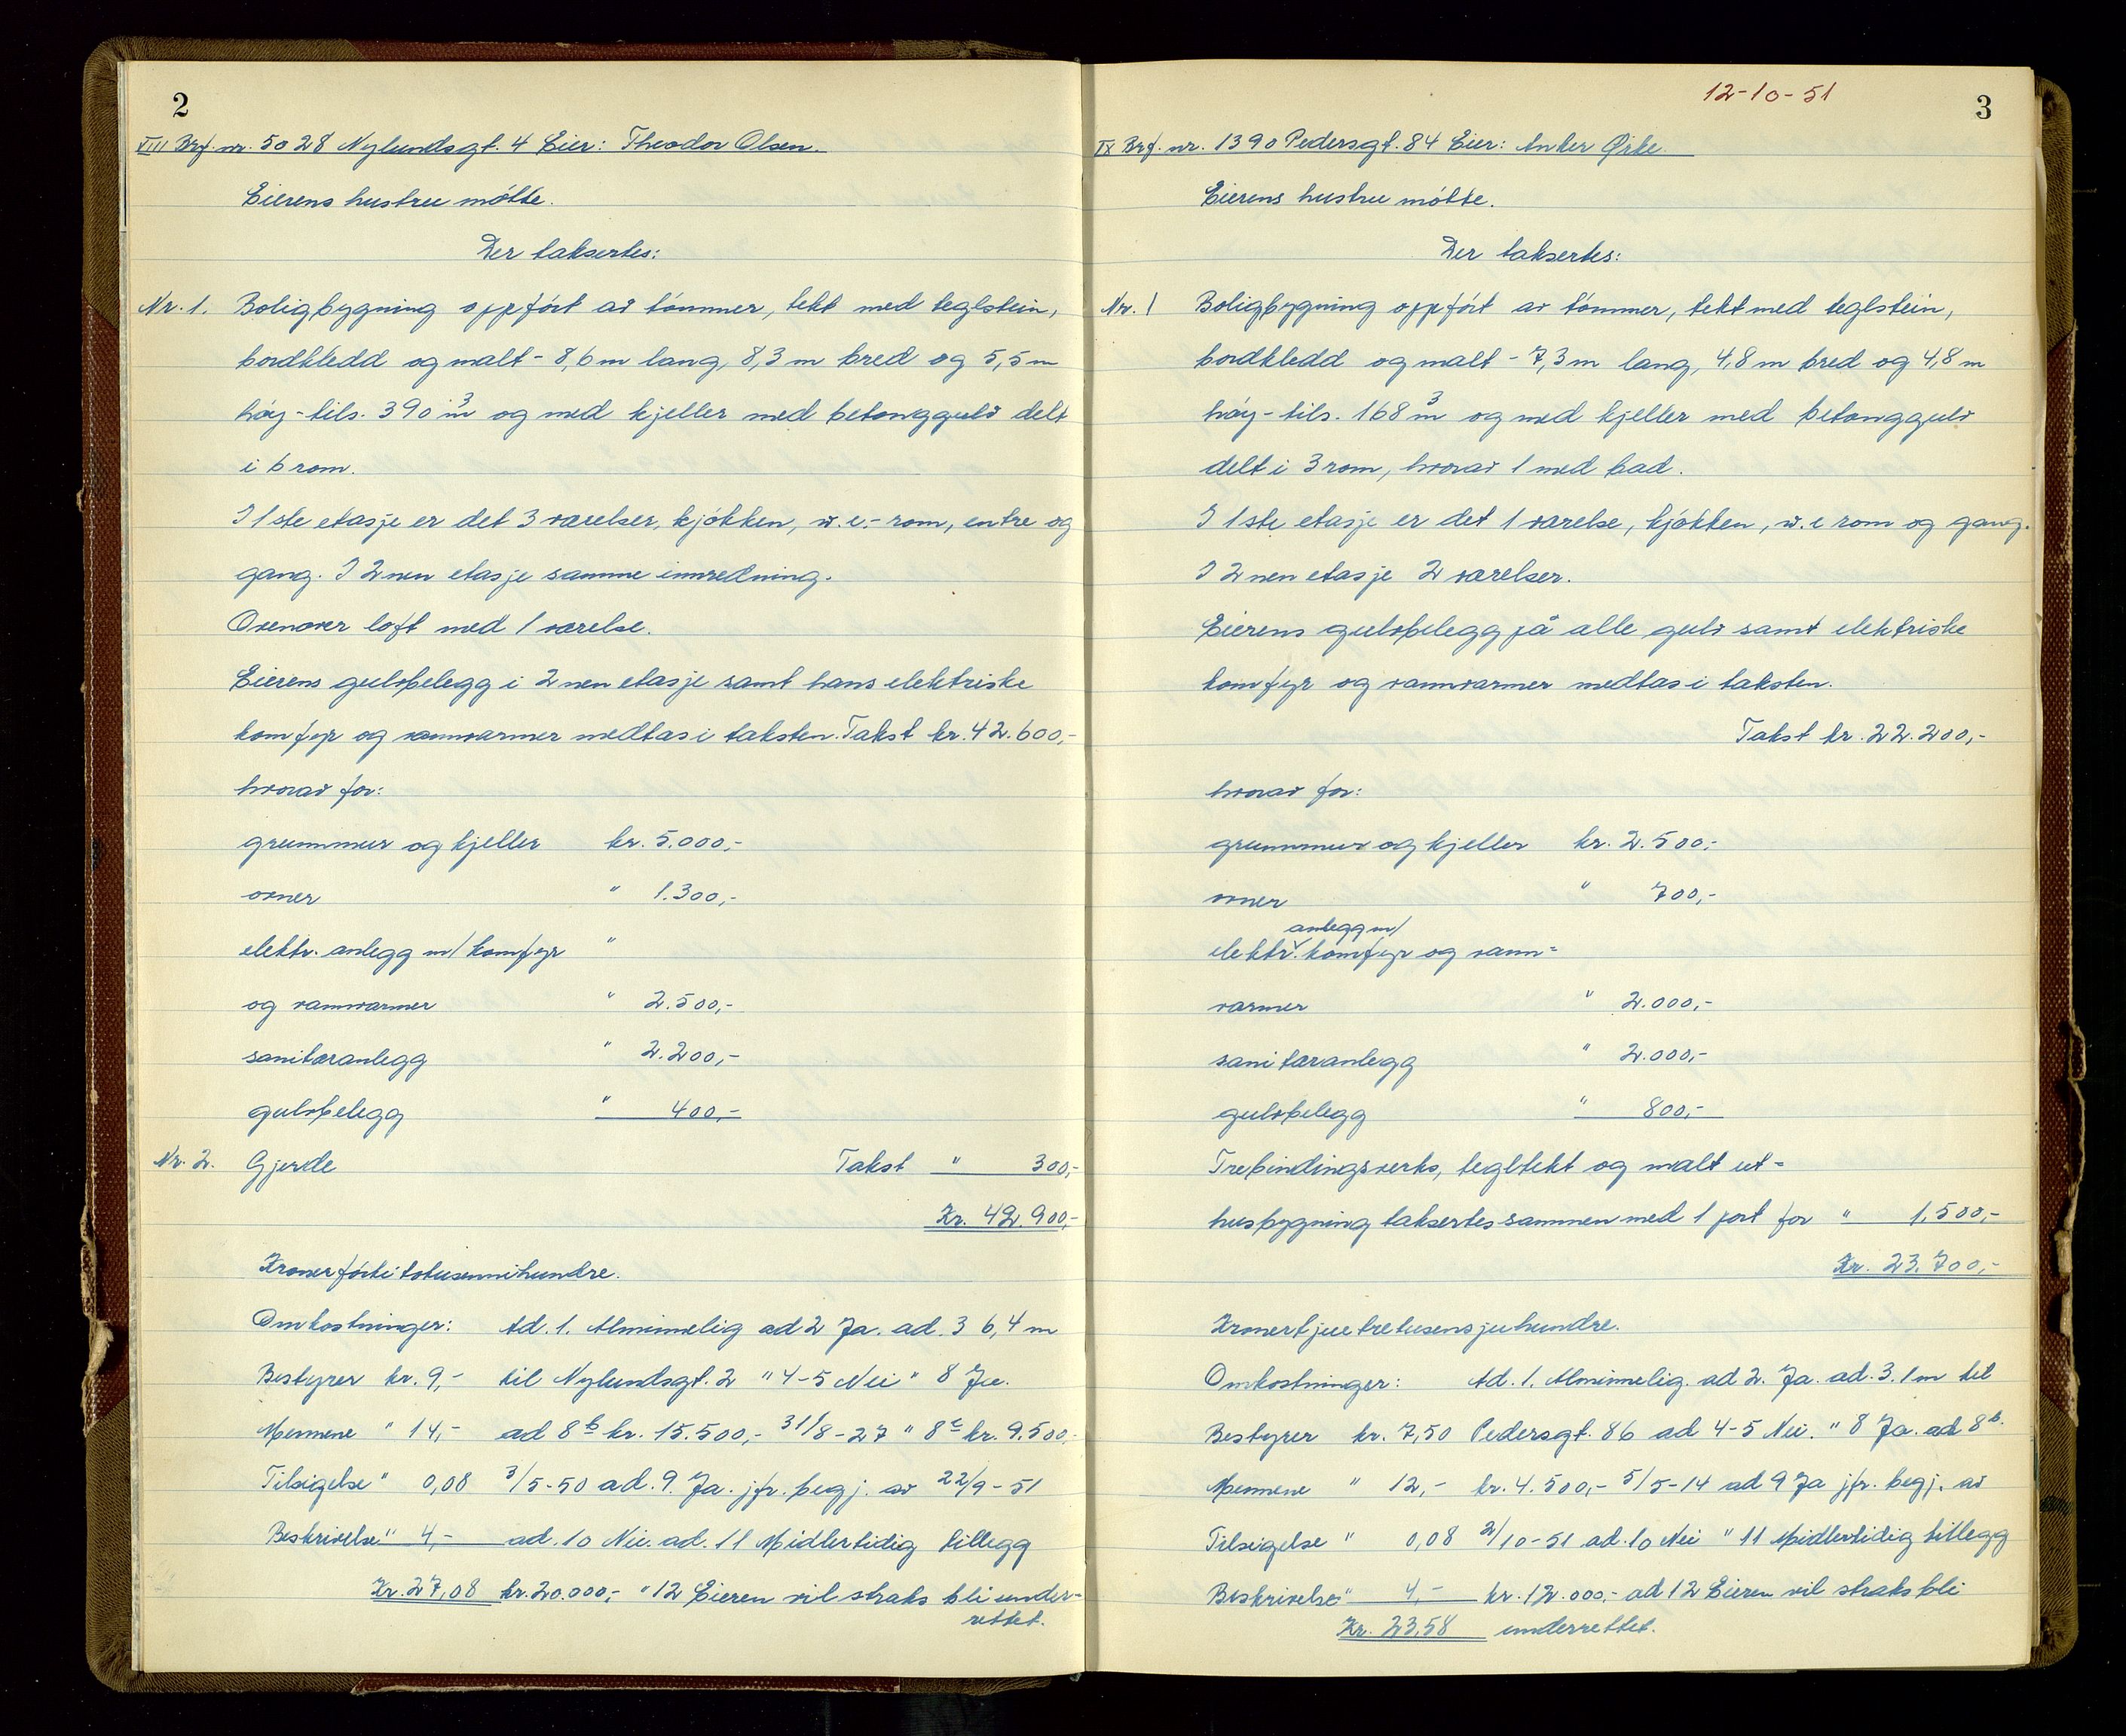 2
VIII Brf. nr. 5028 Nylundsgt. 4 Eier: Theodor Olsen.
Eierens hustru møtte.
Der taksertes:
Nr. 1. Boligbygning oppført av tømmer, tekt med teglstein,
bordkledd og malt - 8,6 m lang, 8,3 m bred og 5,5 m
høy - tils. 390 m³ og med kjeller med betonggulv delt
i 6 rom.
I 1ste etasje er det 3 værelser, kjøkken, w.c.-rom, entre og
gang. I 2nen etasje samme innredning.
Ovenover loft med 1 værelse.
Eierens gulvbelegg i 2nen etasje samt hans elektriske
komfyr og vannvarmer medtas i taksten. Takst kr. 42.600,-
hvorav for:
grunnmur og kjeller kr. 5.000,-
ovner " 1.300,-
elektr. anlegg m/ komfyr "
og vannvarmer " 2.500,-
sanitæranlegg " 2.200,-
gulvbelegg " 400,-
Nr. 2. Gjerde Takst " 300,-
Kr. 42.900,-
Kroner førtitotusennihundre.
Omkostninger: Ad. 1. Alminnelig ad 2 Ja. ad. 3 6,4 m
Bestyrer kr. 9,- til Nylundsgt. 2 " 4-5 Nei " 8 Ja.
Mennene " 14,- ad 8b kr. 15.500,- 31/8-27 " 8c kr. 9.500,-
Tilsigelse " 0,08 3/5-50 ad. 9. Ja. jfr. begj. av 22/9-51
Beskrivelse " 4,- ad. 10 Nei. ad. 11 Midlertidig tillegg
Kr. 27,08 kr. 20.000,- " 12 Eieren vil straks bli under-
rettet.
12-10-51
3
IX Brf. nr. 1390 Pedersgt. 84 Eier: Anker Øike
Eierens hustru møtte.
Der taksertes:
Nr. 1 Boligbygning oppført av tømmer, tekt med teglstein,
bordkledd og malt - 7,3 m lang, 4,8 m bred og 4,8 m
høy - tils. 168 m³ og med kjeller med betonggulv
delt i 3 rom, hvorav 1 med bad.
I 1ste etasje er det 1 værelse, kjøkken, w.c rom og gang.
I 2nen etasje 2 værelser.
Eierens gulvbelegg på alle gulv samt elektriske
komfyr og vannvarmer medtas i taksten.
Takst kr. 22.200,-
hvorav for:
grunnmur og kjeller kr. 2.500,-
ovner " 700,-
anlegg m/
elektr. komfyr og vann=
varmer " 2.000,-
sanitæranlegg " 2.000,-
gulvbelegg " 800,-
Trebindingsverks, tegltekt og malt ut=
husbygning taksertes sammen med 1 port for " 1.500,-
Kr. 23.700,-
Kronertjuetretusensjuhundre.
Omkostninger: Ad. 1. Alminnelig. ad 2. Ja. ad. 3. 1 m til
Bestyrer kr. 7,50 Pedersgt. 86 ad 4-5 Nei. " 8 Ja. ad 8b.
Mennene " 12,- kr. 4.500,- 5/5-14 ad 9 Ja jfr. begj. av
Tilsigelse " 0,08 2/10-51 ad. 10 Nei " 11 Midlertidig tillegg
Beskrivelse " 4,- kr. 12.000,- ad 12 Eieren vil straks bli
Kr. 23,58 underrettet.